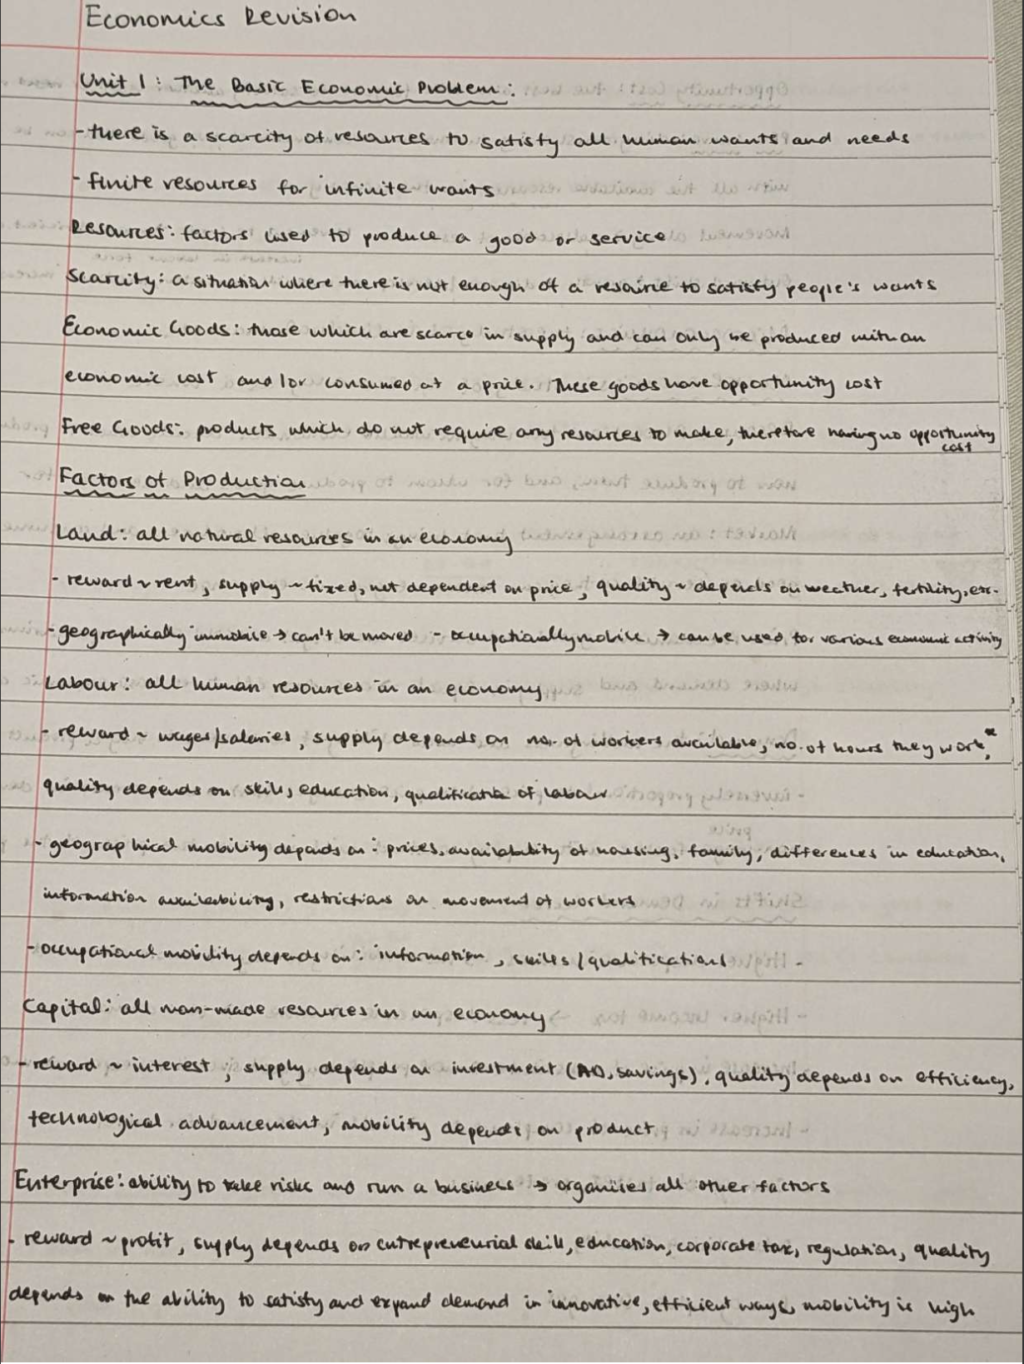 Economics Revision
Unit 1: The Basic Economic Problem:
- there is a scarcity of resources to satisfy all human wants and needs
- finite resources for infinite wants
Resources: factors used to produce a good or service
Scarcity: a situation where there is not enough of a resource to satisfy people's wants
Economic Goods: those which are scarce in supply and can only be produced with an
economic cost and/or consumed at a price. These goods have opportunity cost
Free Goods: products which do not require any resources to make, therefore having no opportunity
cost
Factors of Production
Land: all natural resources in an economy
- reward ~ rent, supply ~ fixed, not dependent on price, quality ~ depends on weather, fertility, etc.
- geographically immobile → can't be moved - occupationally mobile → can be used for various economic activity
Labour: all human resources in an economy
- reward ~ wages/salaries, supply depends on no. of workers available, no. of hours they work,*
quality depends on skill, education, qualification of labour
- geographical mobility depends on: prices, availability of housing, family, differences in education,
information availability, restrictions on movement of workers
- occupational mobility depends on: information, skills/qualifications
Capital: all man-made resources in an economy
- reward ~ interest, supply depends on investment (AD, savings), quality depends on efficiency,
technological advancement, mobility depends on product
Enterprise: ability to take risks and run a business → organises all other factors
- reward ~ profit, supply depends on entrepreneurial skill, education, corporate tax, regulation, quality
depends on the ability to satisfy and expand demand in innovative, efficient ways, mobility is high